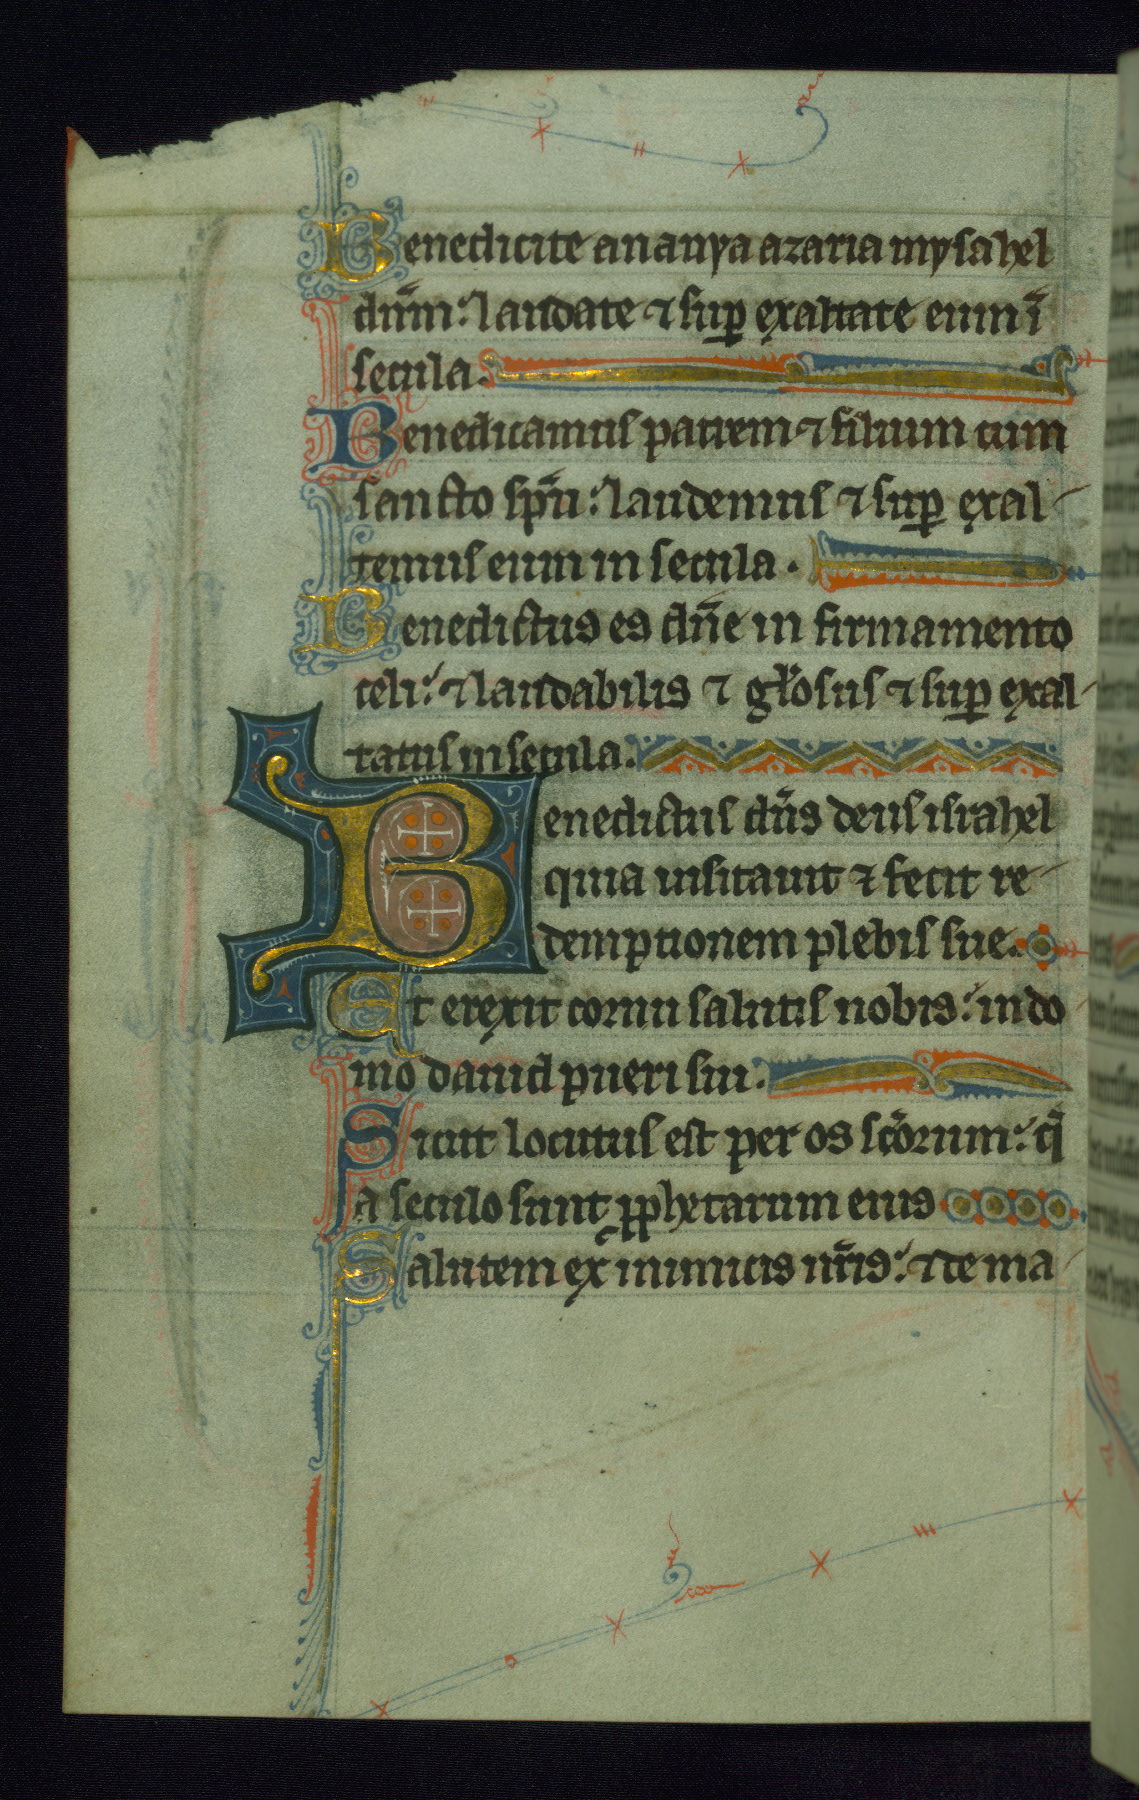 Benedicite ananya azaria mysahel
dn̄m: laudate ⁊ suꝑ exaltate eum ī
secula.
Benedicamus patrem ⁊ filium cum
sancto spū: laudemus ⁊ suꝑ exal
temus eum in secula.
Benedictus es dn̄e in firmamento
celi: ⁊ laudabilis ⁊ gl̓osus ⁊ suꝑ exal
tatus in secula.
Benedictus dn̄s deus israhel
quia uisitauit ⁊ fecit re
demptionem plebis sue.
Et erexit cornu salutis nobis: in do
mo dauid pueri sui.
Sicut locutus est per os sc̄orum: q̄
a seculo sunt ꝓphetarum eius
Salutem ex inimicis nr̄is: ⁊ de ma